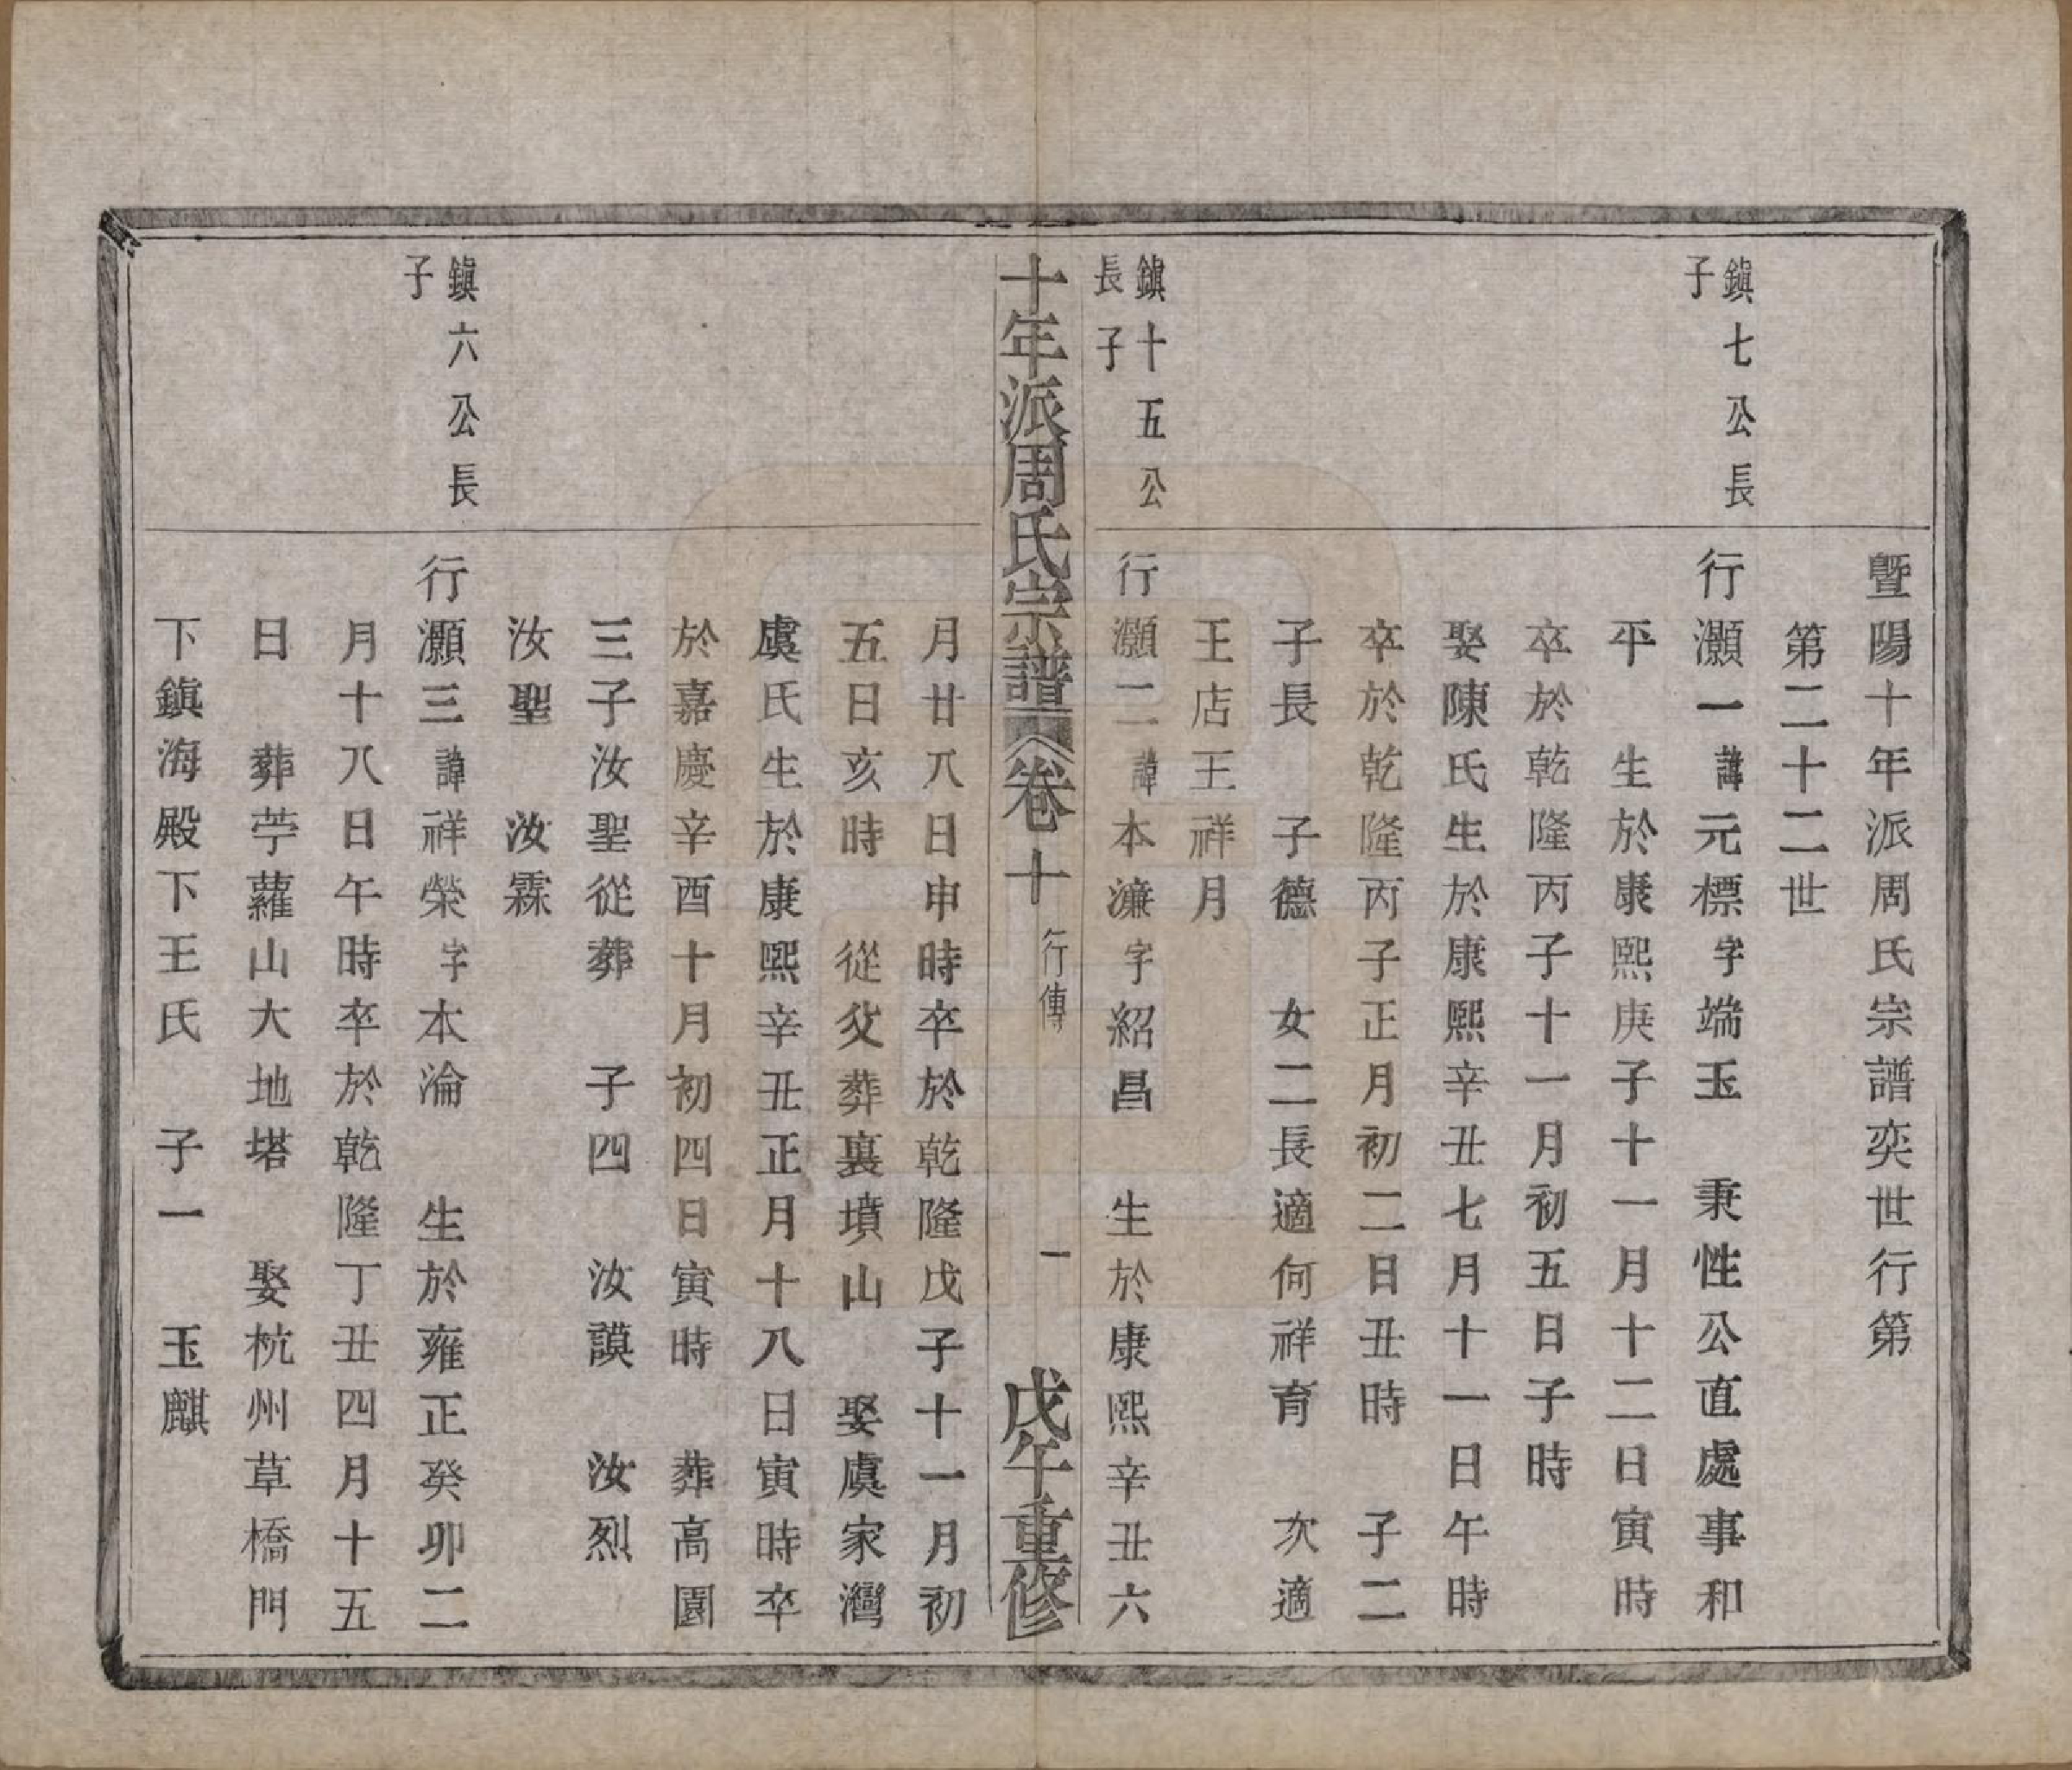 暨陽十年派周氏宗譜奕世行第
第二十二世
鎮七公長
子
行灝一諱元標字端玉　秉性公直處事和
平　生於康熙庚子十一月十二日寅時
卒於乾隆丙子十一月初五日子時
娶陳氏生於康熙辛丑七月十一日午時
卒於乾隆丙子正月初二日丑時　子二
子長　子德　女二長適何祥育　次適
王店王祥月
鎮十五公
長子
行灝二諱本濂字紹昌　生於康熙辛丑六
十年派周氏宗譜　卷十　行傳　一　戊午重修
月廿八日申時卒於乾隆戊子十一月初
五日亥時　從父葬裏墳山　娶虞家灣
虞氏生於康熙辛丑正月十八日寅時卒
於嘉慶辛酉十月初四日寅時　葬高園
三子汝聖從葬　子四　汝謨　汝烈
汝聖　汝霖
鎮六公長
子
行灝三諱祥榮字本淪　生於雍正癸卯二
月十八日午時卒於乾隆丁丑四月十五
日　葬苧蘿山大地塔　娶杭州草橋門
下鎮海殿下王氏　子一　玉麒